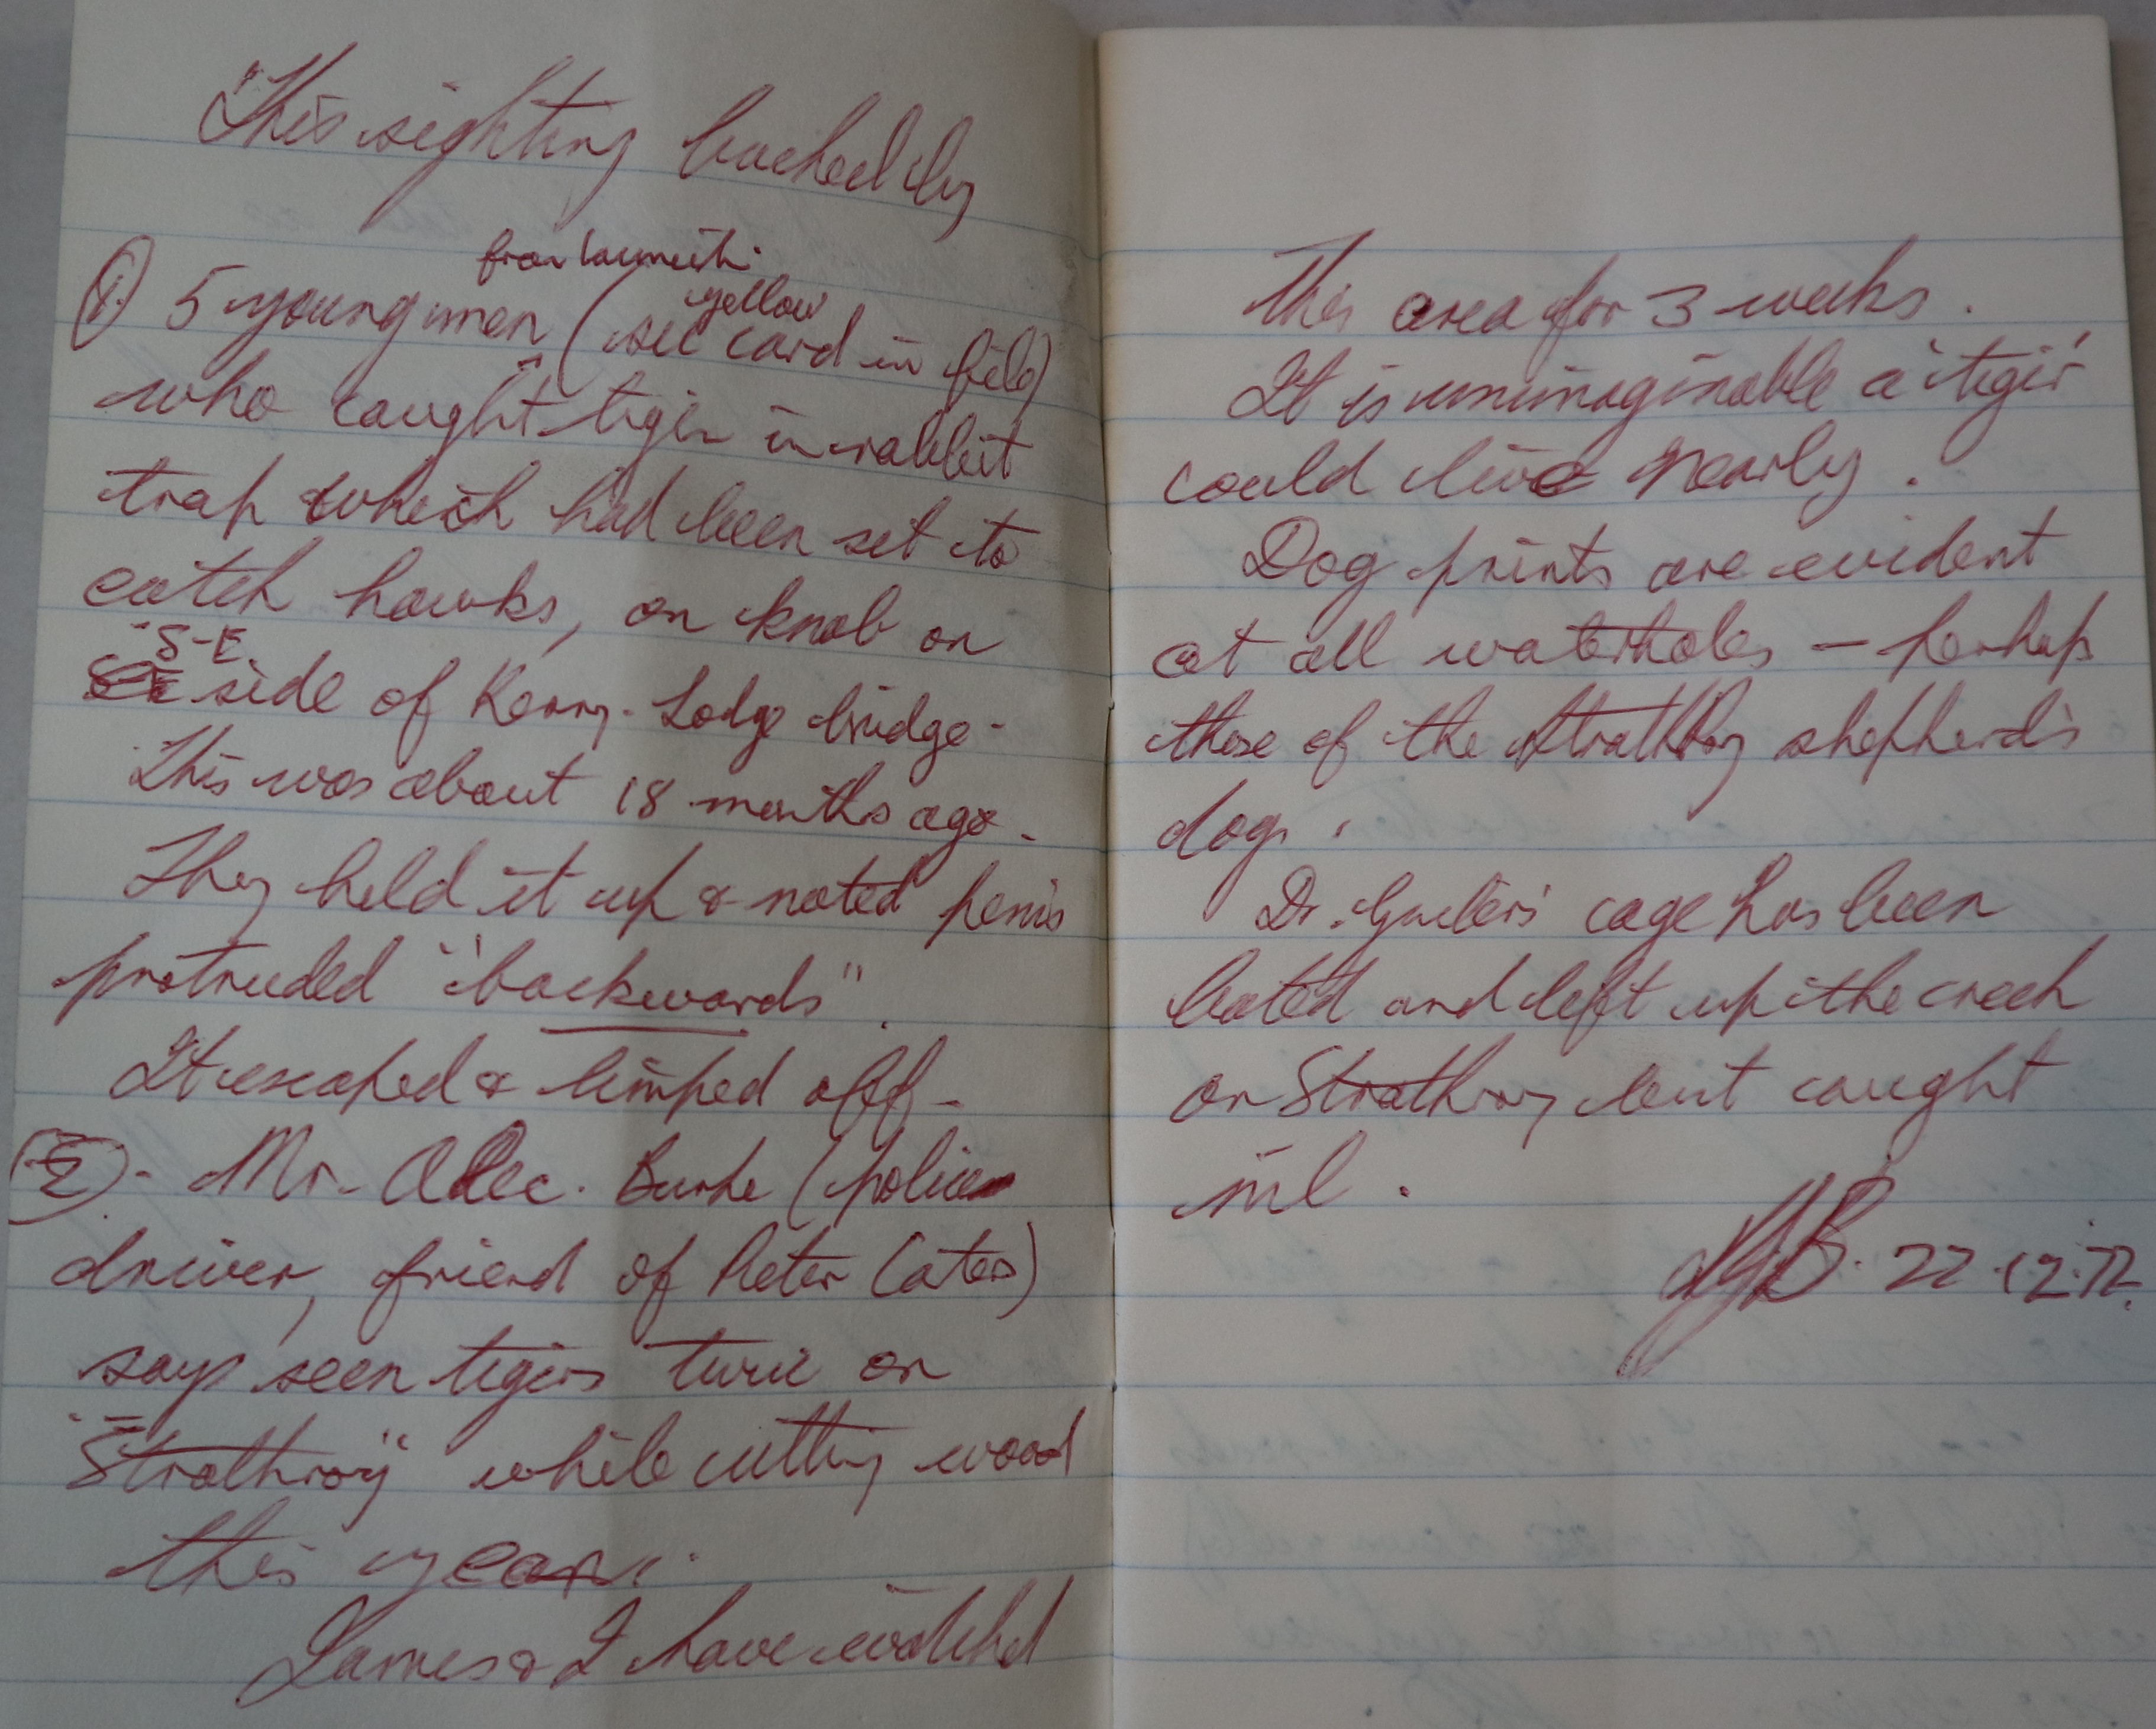 This sighting backed by
from Launceston.
yellow
① 5 young men (see card in file)
who caught tiger in rabbit
trap which had been set to
catch hawks, on knob on
"S-E
side of Kerry-Lodge bridge-
This was about 18 months ago-
They held it up & noted penis
protruded "backwards".
It escaped & limped off-
②- Mr- Alec. Burke (police
driver, friend of Peter Cates)
says seen tigers twice on
"Strathroy" while cutting wood
this year.
James & I have watched
This area for 3 weeks.
It is unimaginable a 'tiger'
could live nearby.
Dog prints are evident
at all waterholes – perhap
those of the Strathroy shepherd's
dog.
Dr. Guiler's cage has been
baited and left up the creek
on Strathroy but caught
nil.
22.12.72.